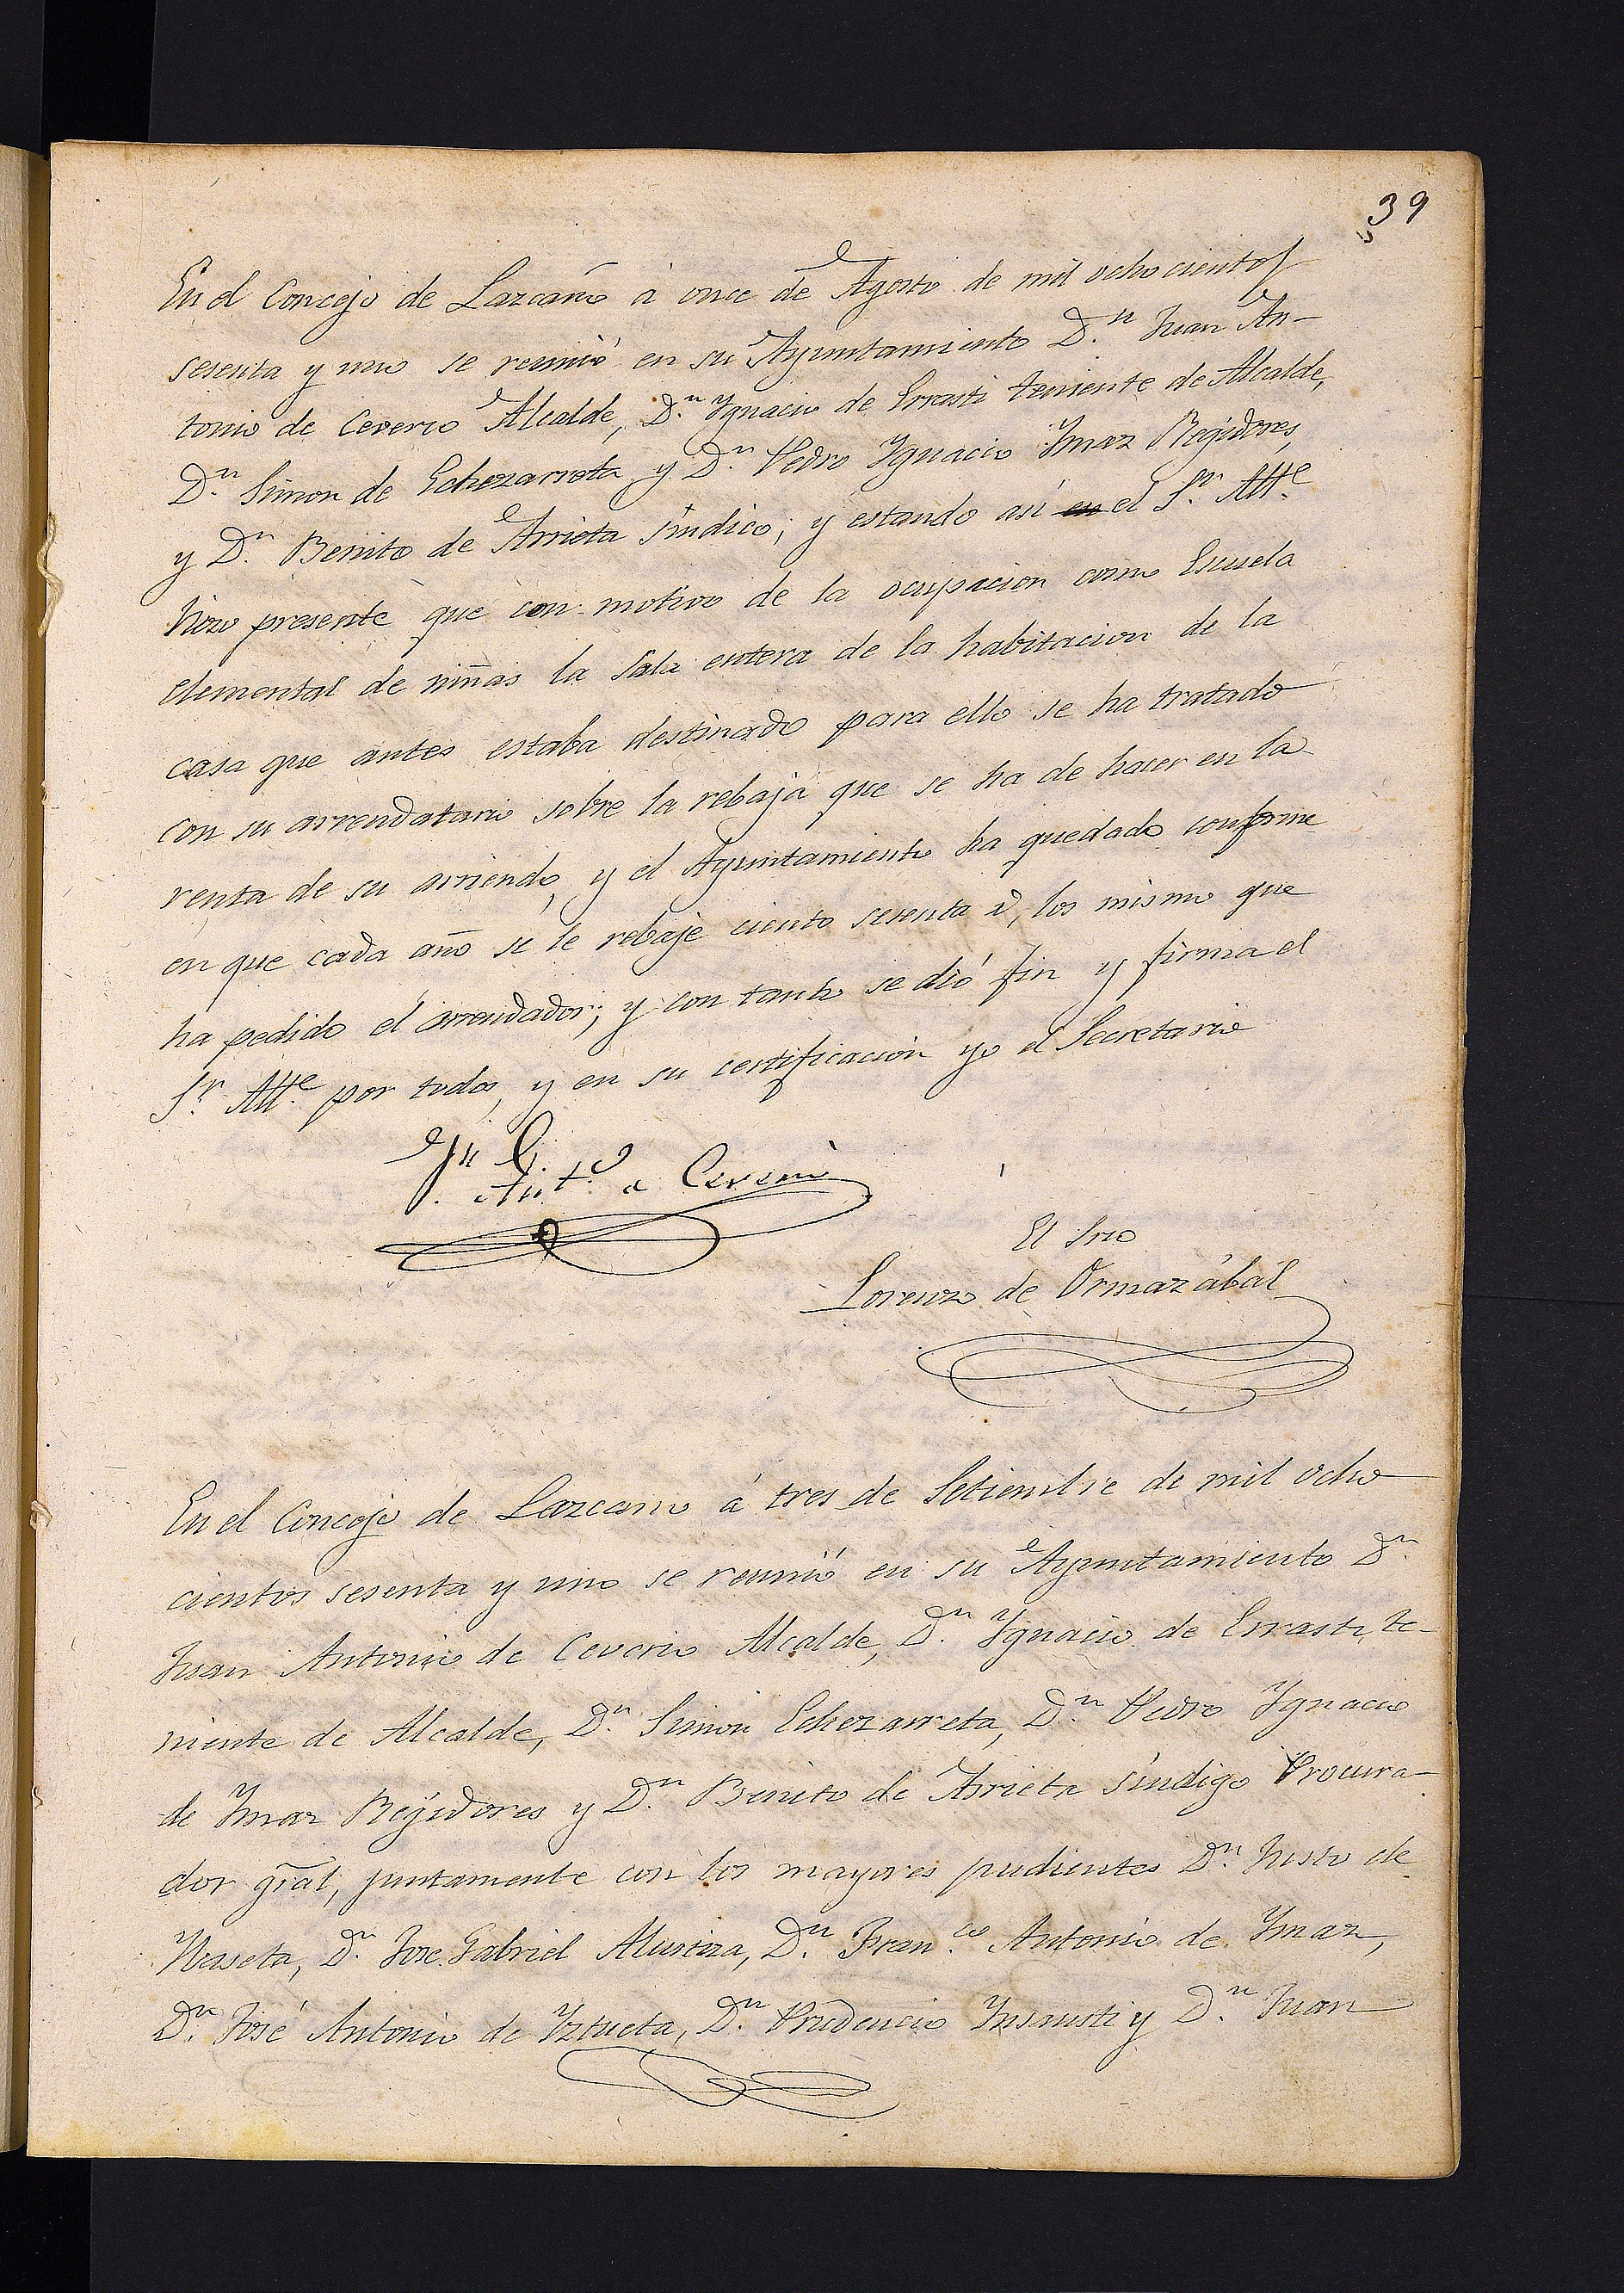 39
En el Concejo de Lazcano á once de Agosto de mil ochocientos
sesenta y uno se reunió en su Ayuntamiento D.n Juan An-
tonio de Ceverio Alcalde, D.n Ygnacio de Errasti teniente de Alcalde,
D.n Simon de Echezarreta y D.n Pedro Ygnacio Ymaz Regidores,
y D.n Benito de Arrieta síndico; y estando así en el S.r Alt.e
hizo presente que con motivo de la ocupacion como Escuela
elemental de niñas la Sala entera de la habitacion de la
casa que antes estaba destinado para ello se ha tratado
con su arrendatario sobre la rebaja que se ha de hacer en la
renta de su arriendo, y el Ayuntamiento ha quedado conforme
en que cada año se le rebaje ciento sesenta r, los mismo que
ha pedido el arrendador; y con tanto se dió fin y firma el
S.r Alt.e por todos, y en su certificacion yo el Secretario
Jn Ant.o Ceverio
El Srio
Lorenzo de Ormazábal
En el Concejo de Lazcano á tres de Setiembre de mil ocho
cientos sesenta y uno se reunió en su Ayuntamiento D.n
Juan Antonio de Ceverio Alcalde, D.n Ygnacio de Errasti, te-
niente de Alcalde, D.n Simon Echezarreta, D.n Pedro Ygnacio
de Ymaz Regidores y D.n Benito de Arrieta síndigo Procura-
dor gral, juntamente con los mayores pudientes D.n Justo de
D.n José Gabriel D.n Fran.co Antonio de Ymaz,
D.n José Antonio de Yztueta, D.n Prudencio Ynsausti y D.n Juan